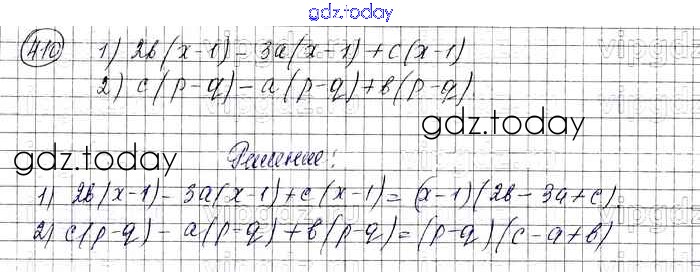 gdz.today
410 1) 2в(x-1) - 3a(x-1) + c(x-1)
2) c(p-q) - a(p-q) + в(p-q)
gdz.today
gdz.today
Решение:
1) 2в(x-1) - 3a(x-1) + c(x-1) = (x-1)(2в - 3a + c)
2) c(p-q) - a(p-q) + в(p-q) = (p-q)(c - a + в)